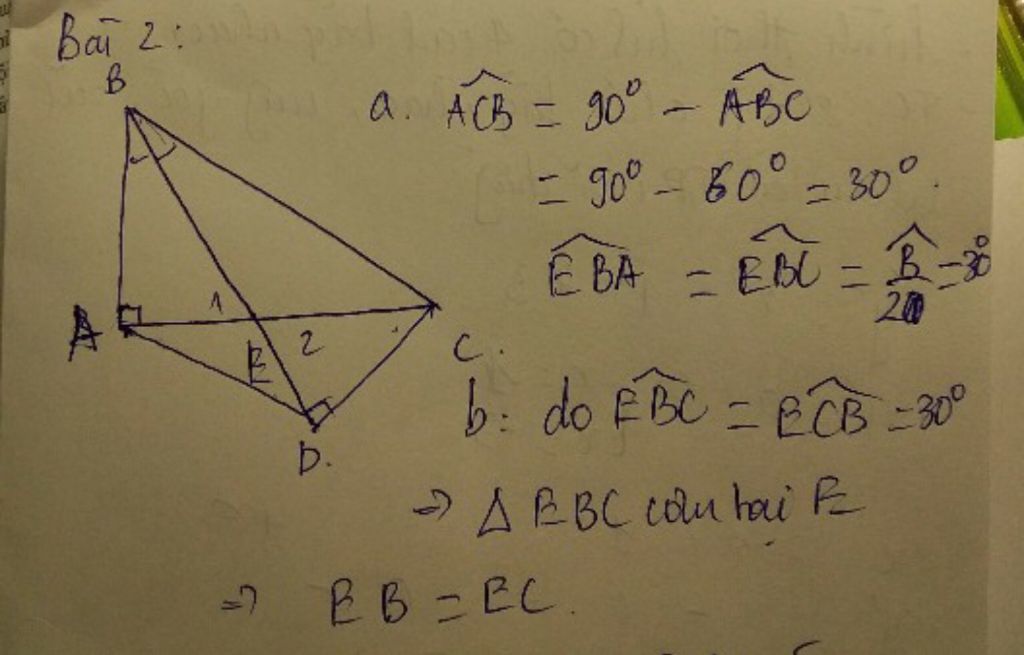 Bài 2:
B
a. ACB = 90° - ABC
= 90° - 60° = 30°.
EBA = EBC = B/2 = 30°
A
1
2
E
C.
D.
b: do EBC = ECB = 30°
=> Δ EBC cân tại E
=> EB = EC.